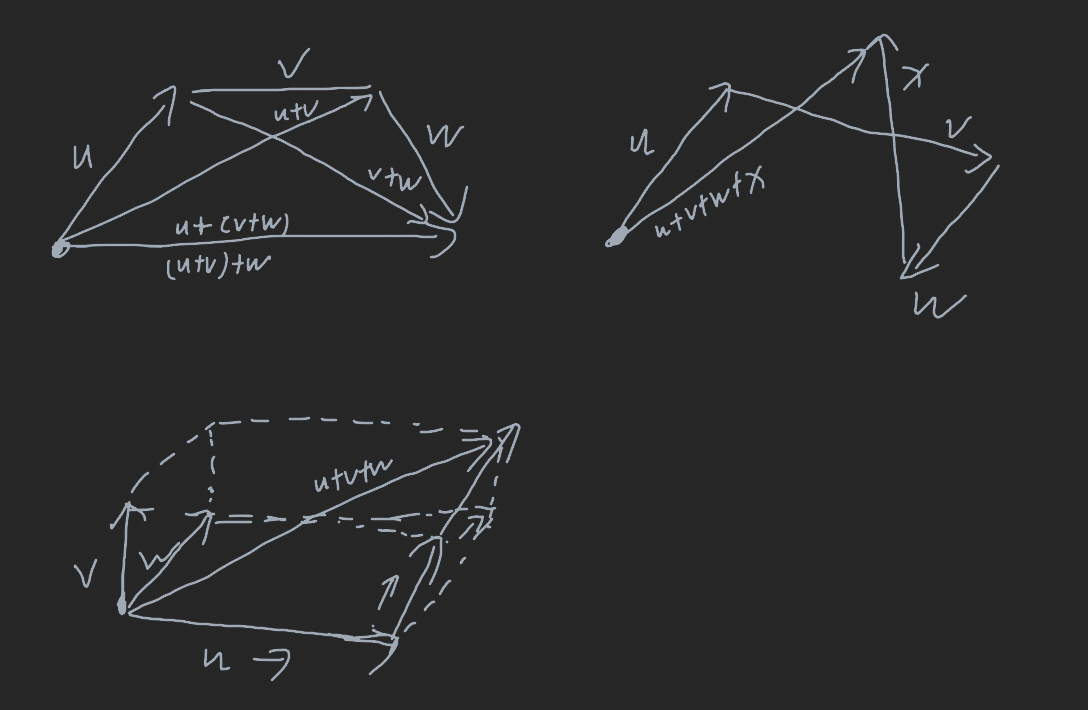 v
u
u+v
w
v+w
u+(v+w)
(u+v)+w
u
x
v
u+v+w+x
w
u+v+w
v
w
u →